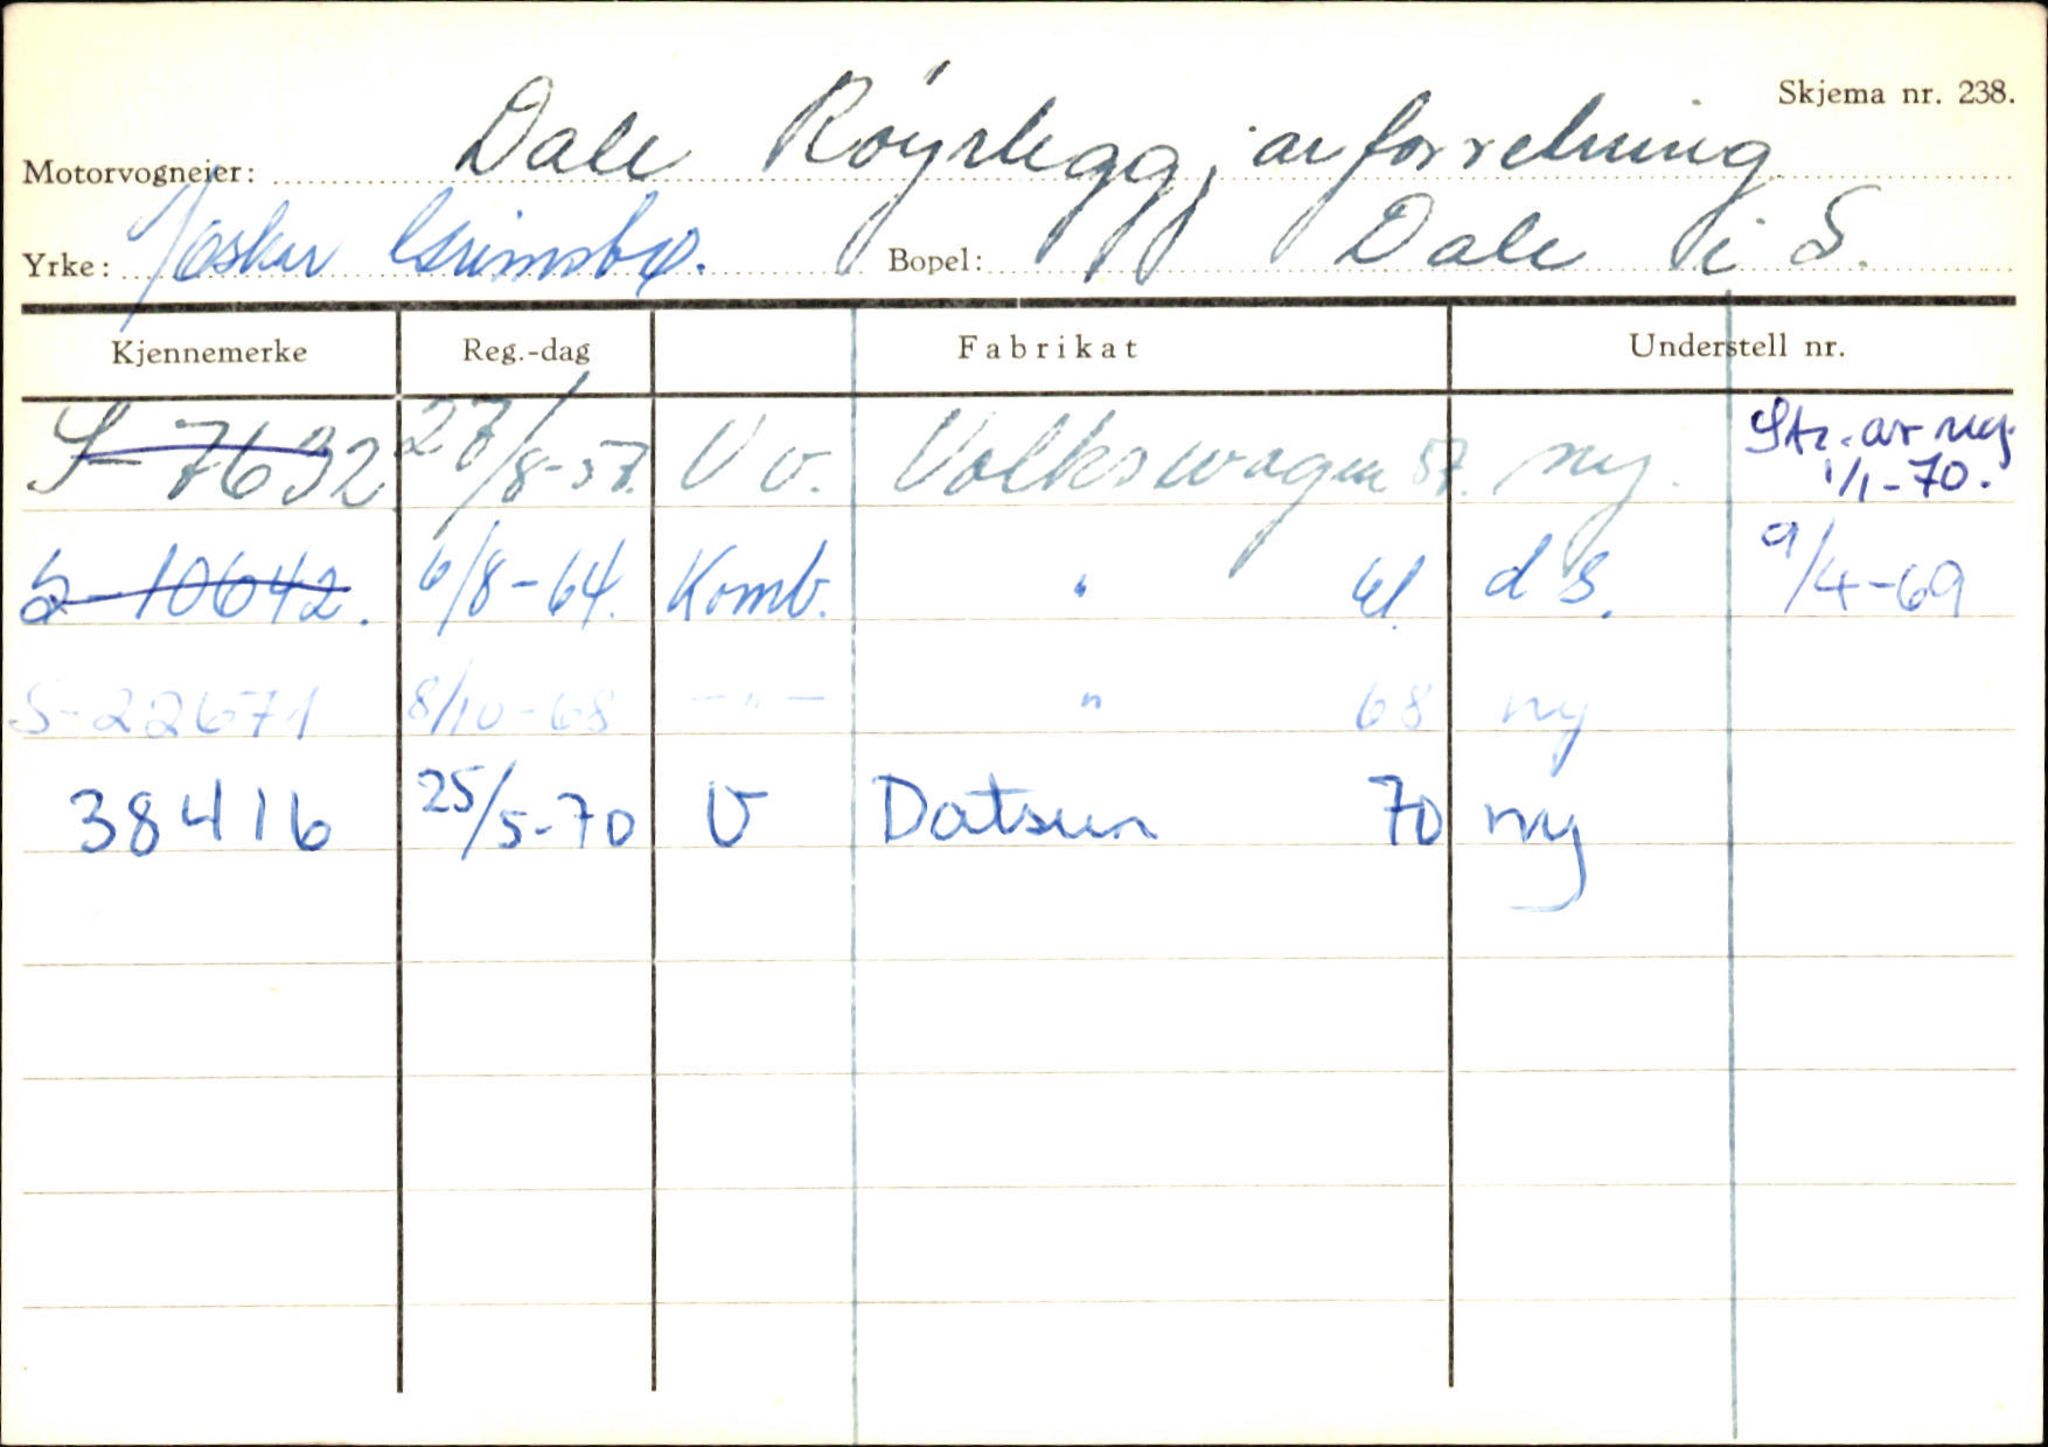 Skjema nr. 238.
Motorvogneier: Dale Røyrleggjarforretning
Yrke: v/Oskar Grimsbø. Bopel: Dale i S.
Kjennemerke Reg.-dag Fabrikat Understell nr.
S-7632 27/8-57. V v. Volkswagen 57. ny. Str. av reg. 1/1-70.
S-10642. 6/8-64. Komb. " 61. d s. 9/4-69
S-22671 8/10-68 -"- " 68 ny
38416 25/5-70 V Datsun 70 ny